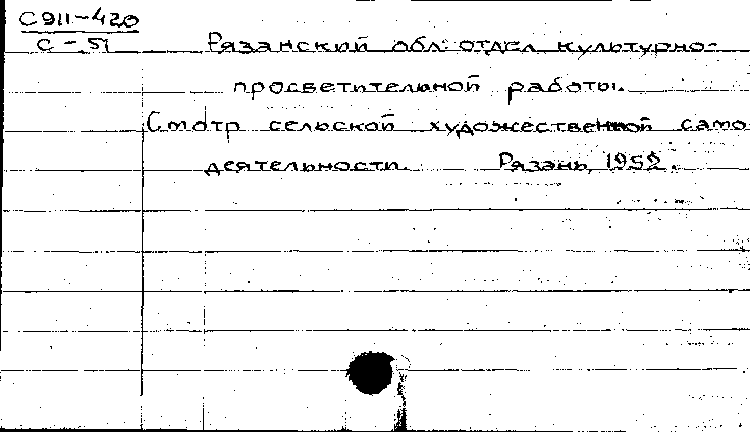 С911-420
С-51
Рязанский обл. отдел культурно-
просветительной работы.
Смотр сельской художественной само
деятельности. Рязань, 1952.